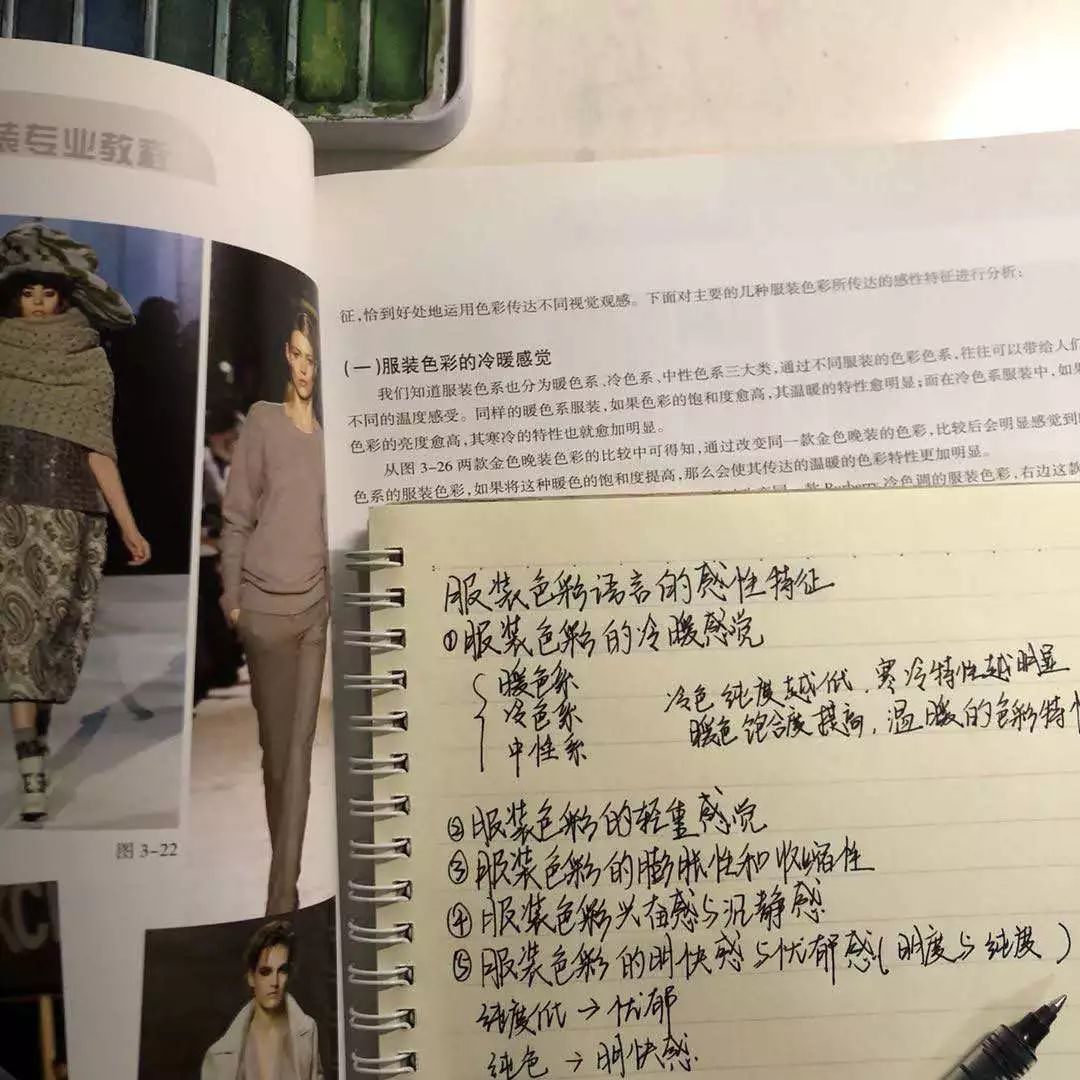 装专业教程
征,恰到好处地运用色彩传达不同视觉观感。下面对主要的几种服装色彩所传达的感性特征进行分析:
(一)服装色彩的冷暖感觉
我们知道服装色系也分为暖色系、冷色系、中性色系三大类,通过不同服装的色彩色系,往往可以带给人们
不同的温度感受。同样的暖色系服装,如果色彩的饱和度愈高,其温暖的特性愈明显;而在冷色系服装中,如果
色彩的亮度愈高,其寒冷的特性也就愈加明显。
从图 3-26 两款金色晚装色彩的比较中可得知,通过改变同一款金色晚装的色彩,比较后会明显感觉到
色系的服装色彩,如果将这种暖色的饱和度提高,那么会使其传达的温暖的色彩特性更加明显。
冷色调的服装色彩,右边这款
图 3-22
服装色彩语言的感性特征
①服装色彩的冷暖感觉
暖色系
冷色系
中性系
冷色纯度越低,寒冷特性越明显
暖色饱合度提高,温暖的色彩特性
②服装色彩的轻重感觉
③服装色彩的膨胀性和收缩性
④服装色彩兴奋感与沉静感
⑤服装色彩的明快感与忧郁感(明度与纯度)
纯度低→忧郁
纯色→明快感